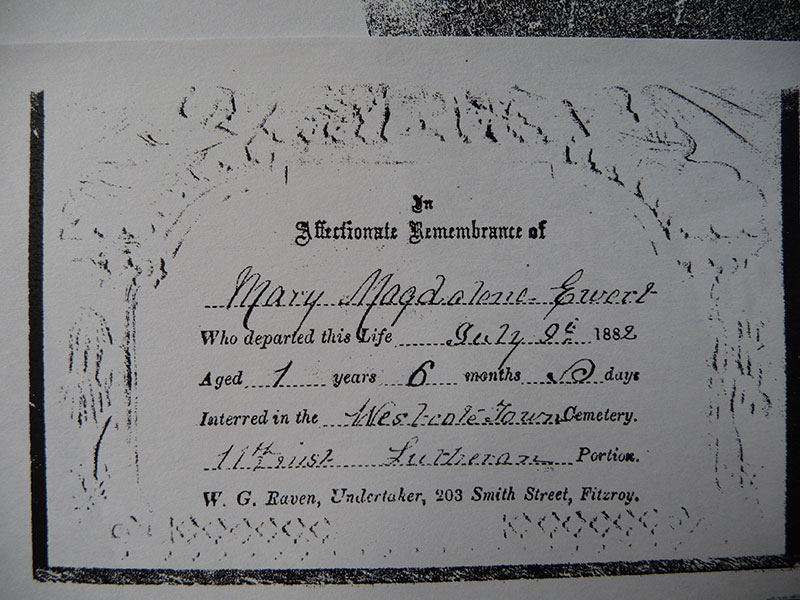 In
Affectionate Remembrance of
Mary Magdalene Ewert
Who departed this Life July 9th 1882
Aged 1 years 6 months days
Interred in the Town Cemetery.
11th inst Lutheran Portion.
W. G. Raven, Undertaker, 203 Smith Street, Fitzroy.